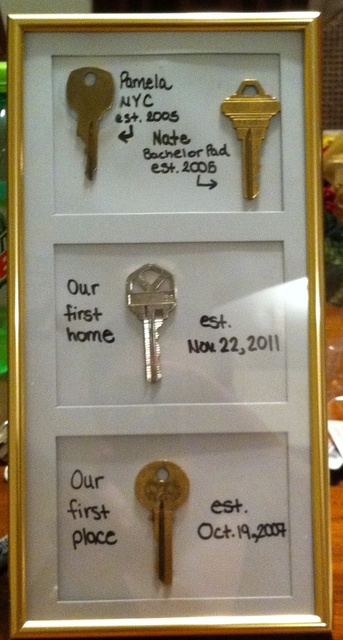 Pamela
NYC
est. 2005
Nate
Bachelor Pad
est. 2005
Our
first
home
est.
Nov. 22, 2011
Our
first
place
est.
Oct. 19, 2007